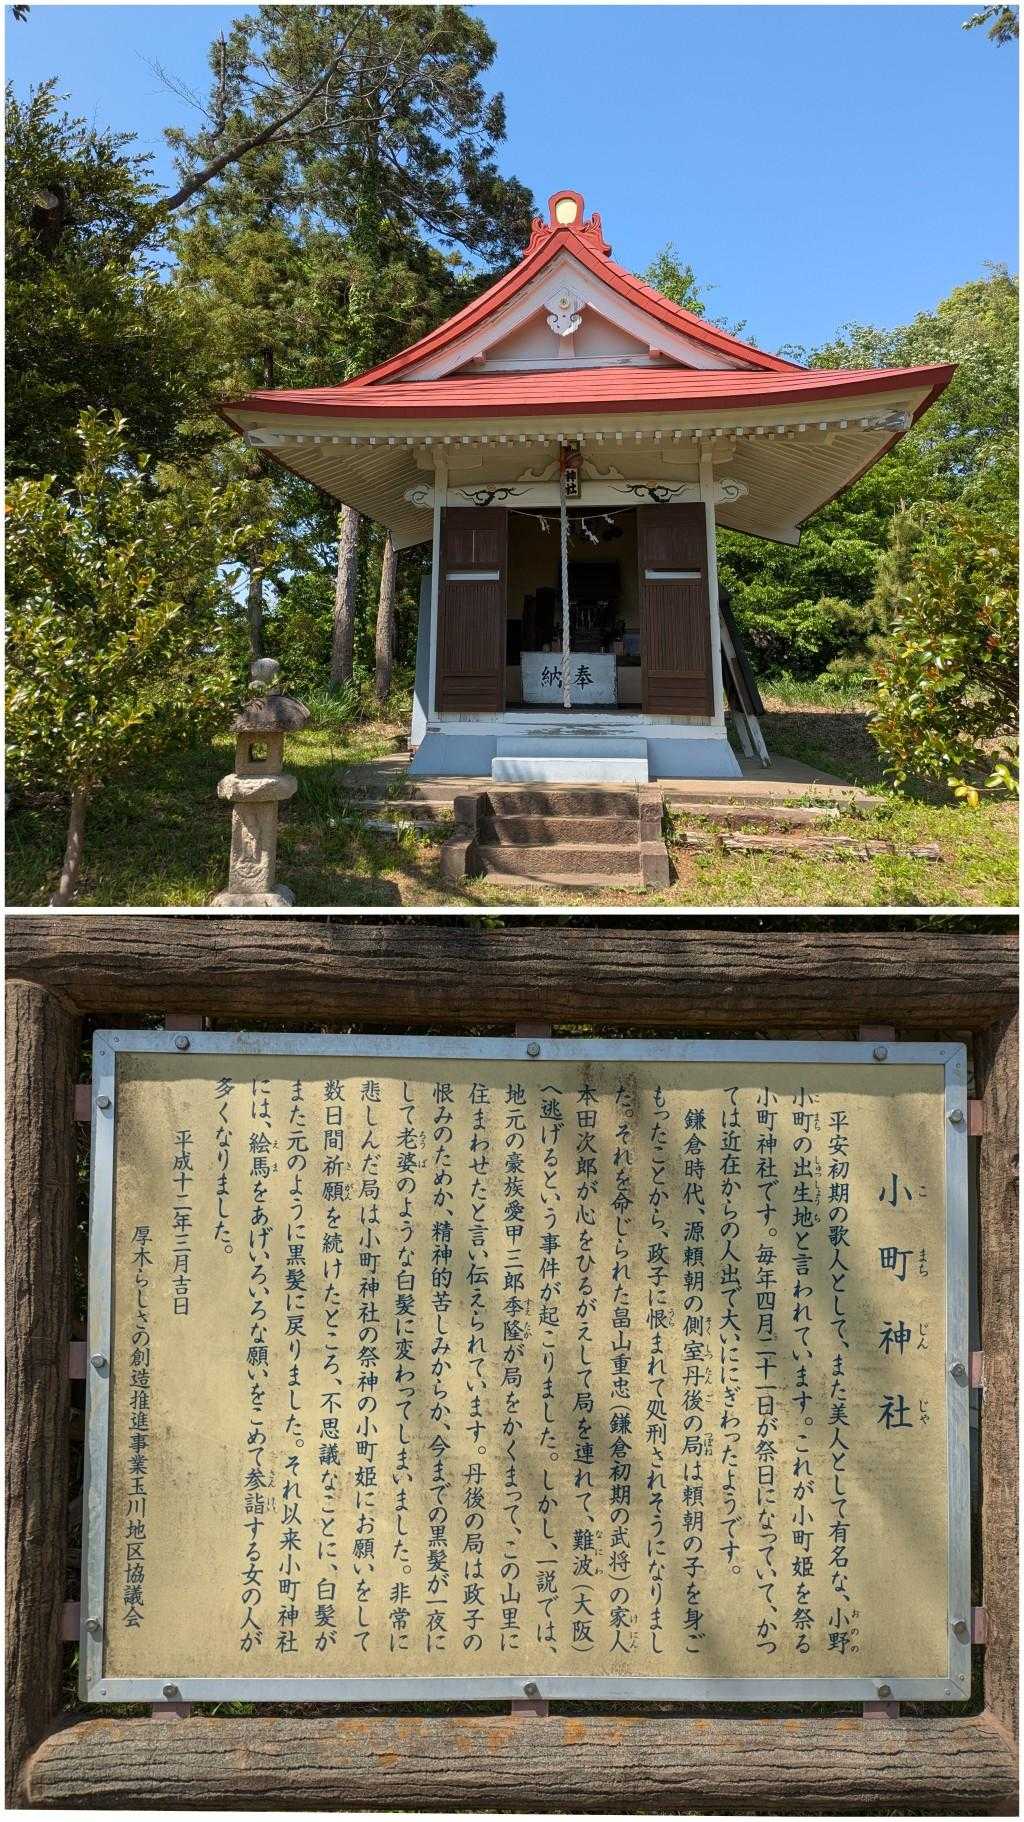 神社
納奉
小町神社
こまちじんじゃ
平安初期の歌人として、また美人として有名な、小野
おのの
小町の出生地と言われています。これが小町姫を祭る
こまち しゅっしょうち
小町神社です。毎年四月二十一日が祭日になっていて、かつ
ては近在からの人出で大いににぎわったようです。
鎌倉時代、源頼朝の側室丹後の局は頼朝の子を身ご
そくしつたんご つぼね
もったことから、政子に恨まれて処刑されそうになりまし
うら
た。それを命じられた畠山重忠(鎌倉初期の武将)の家人
けにん
本田次郎が心をひるがえして局を連れて、難波(大阪)
なにわ
へ逃げるという事件が起こりました。しかし、一説では、
地元の豪族愛甲三郎季隆が局をかくまって、この山里に
すえたか
住まわせたと言い伝えられています。丹後の局は政子の
恨みのためか、精神的苦しみからか、今までの黒髪が一夜に
して老婆のような白髪に変わってしまいました。非常に
ろうば
悲しんだ局は小町神社の祭神の小町姫にお願いをして
数日間祈願を続けたところ、不思議なことに、白髪が
きがん
また元のように黒髪に戻りました。それ以来小町神社
には、絵馬をあげいろいろな願いをこめて参詣する女の人が
えま さんけい
多くなりました。
平成十二年三月吉日
厚木らしさの創造推進事業玉川地区協議会